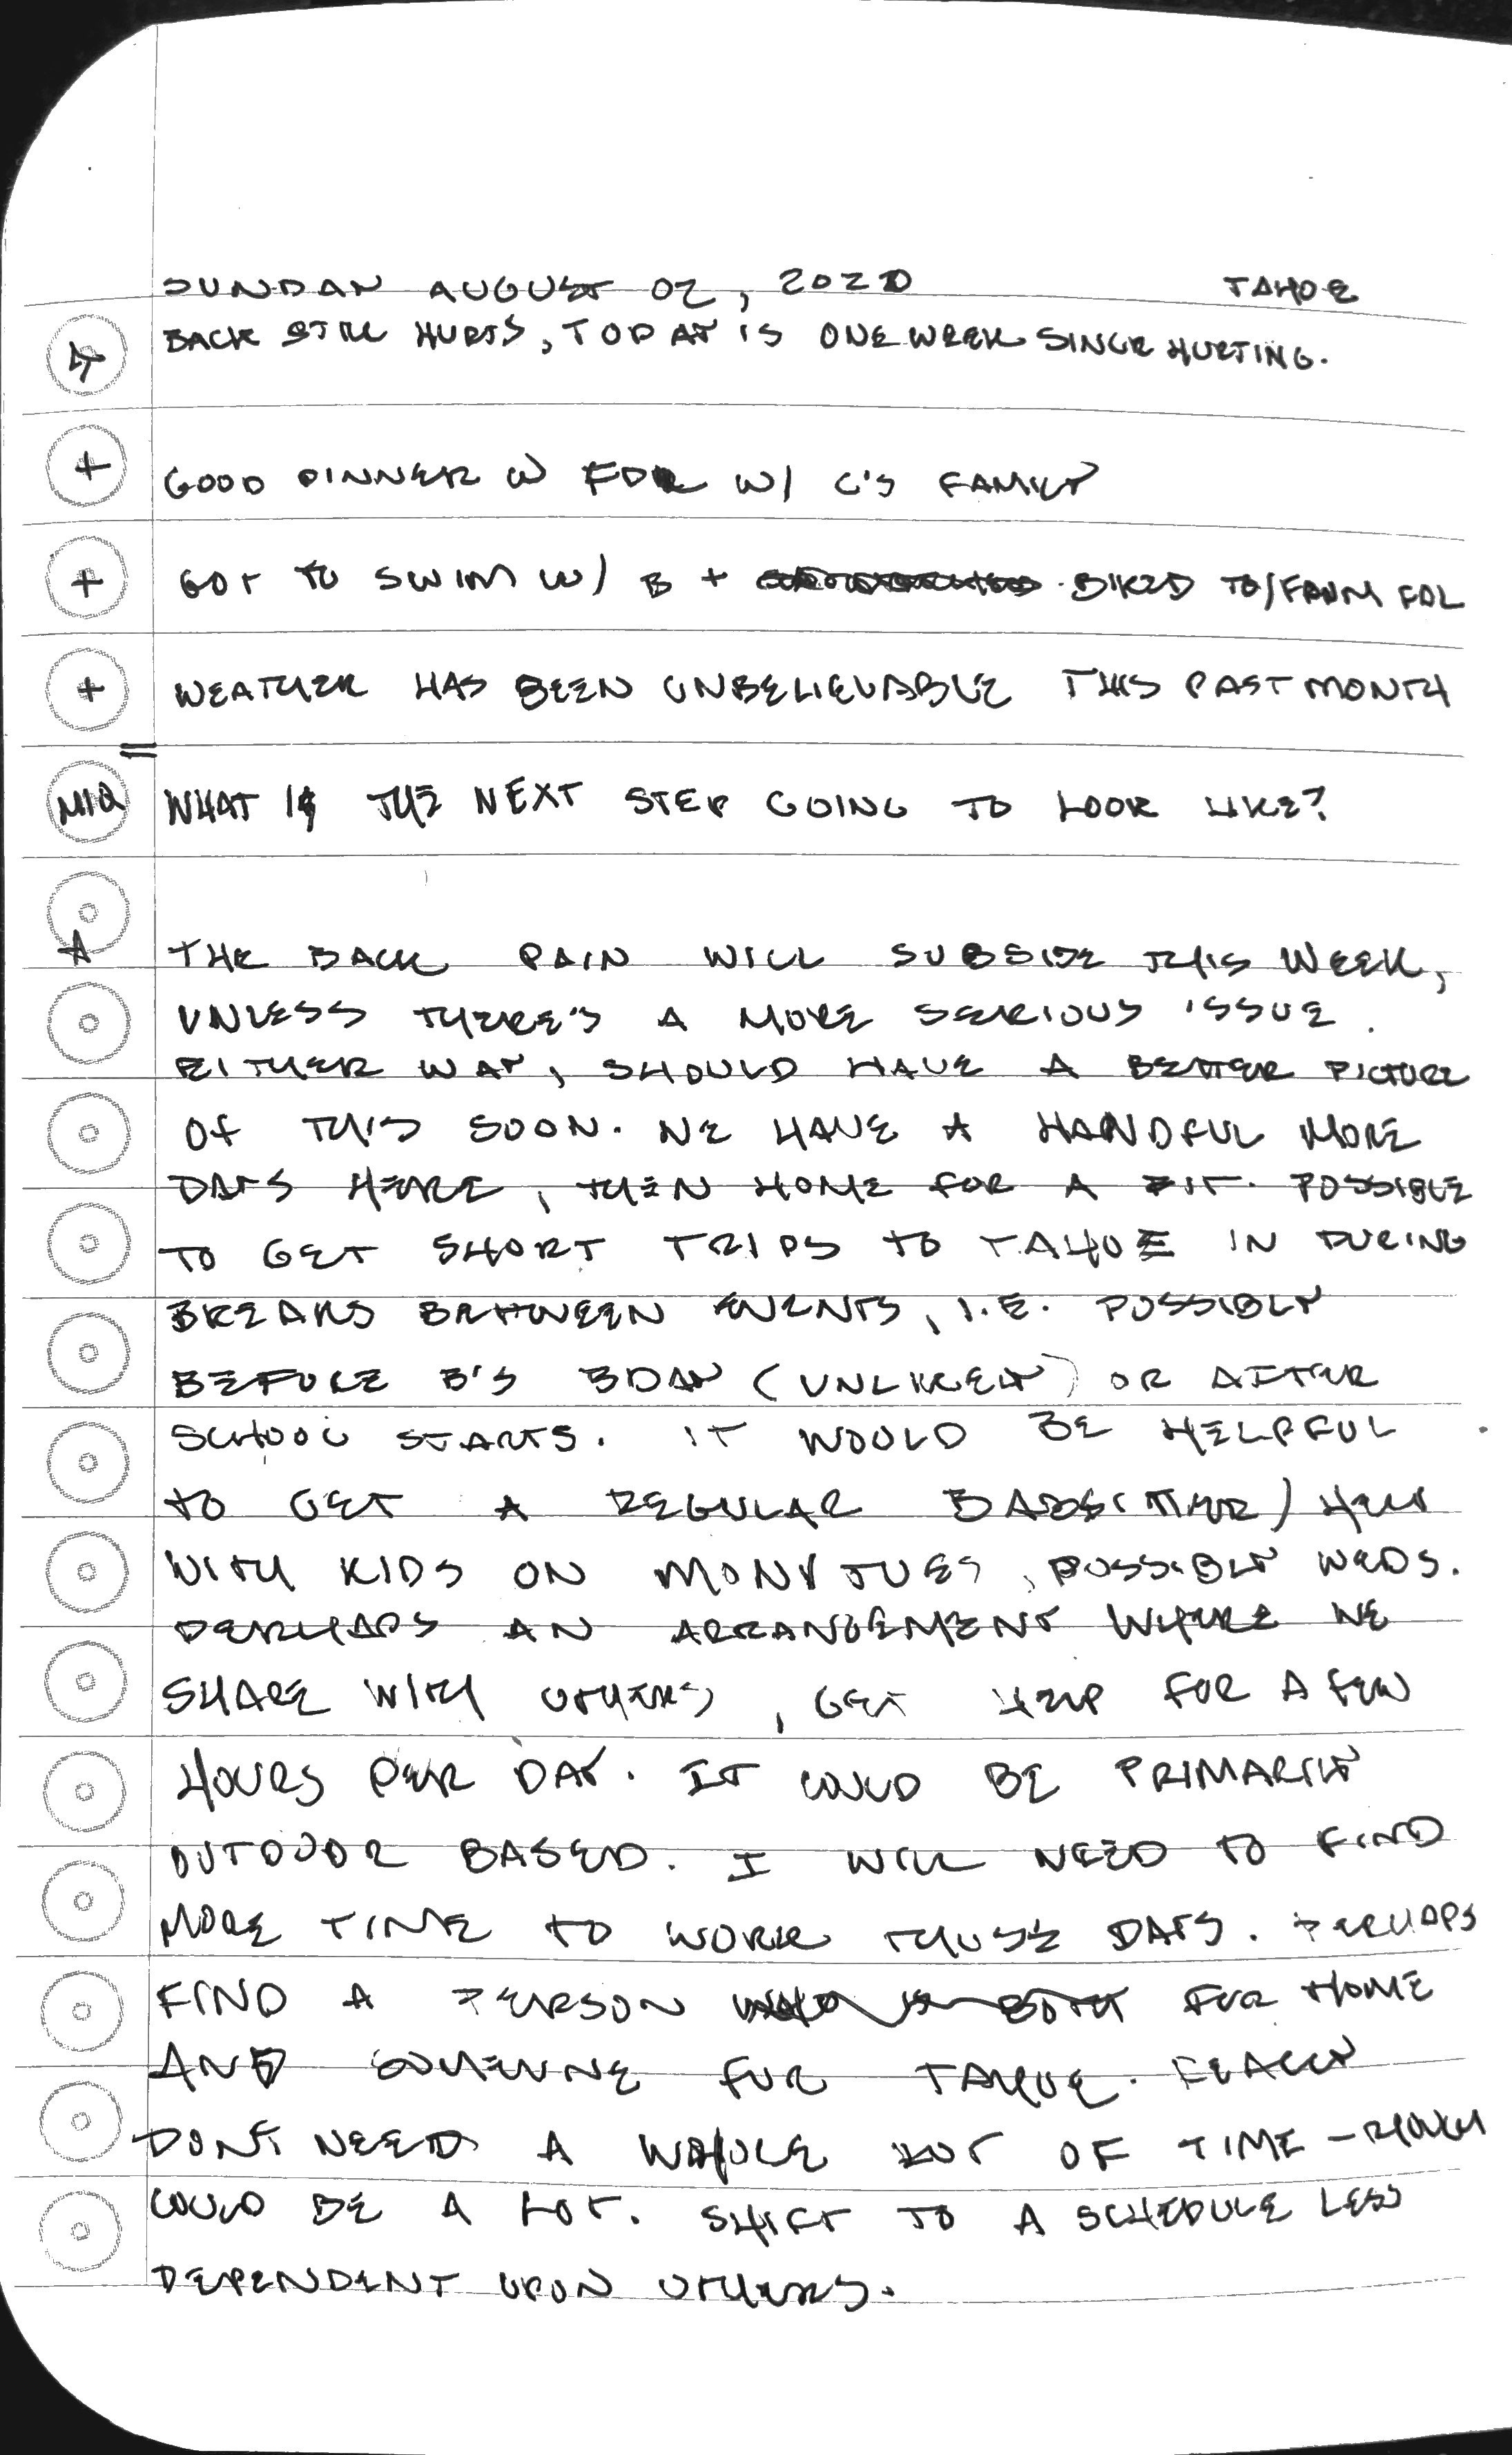 SUNDAY AUGUST 02, 2020 TAHOE
BACK STILL HURTS, TODAY IS ONE WEEK SINCE HURTING.
+ GOOD DINNER W FDL W/ C'S FAMILY
+ GOT TO SWIM W/ B + BIKED TO/FROM FDL
+ WEATHER HAS BEEN UNBELIEVABLE THIS PAST MONTH
MIQ WHAT IS THE NEXT STEP GOING TO LOOK LIKE?
A THE BACK PAIN WILL SUBSIDE THIS WEEK,
UNLESS THERE'S A MORE SERIOUS ISSUE.
EITHER WAY, SHOULD HAVE A BETTER PICTURE
OF THIS SOON. WE HAVE A HANDFUL MORE
DAYS HERE, THEN HOME FOR A BIT. POSSIBLE
TO GET SHORT TRIPS TO TAHOE IN DURING
BREAKS BETWEEN EVENTS, I.E. POSSIBLY
BEFORE B'S BDAY (UNLIKELY) OR AFTER
SCHOOL STARTS. IT WOULD BE HELPFUL
TO GET A REGULAR BABYSITTER/HELP
WITH KIDS ON MON & TUES, POSSIBLY WEDS.
PERHAPS AN ARRANGEMENT WHERE WE
SHARE WITH OTHERS, GET HELP FOR A FEW
HOURS PER DAY. IT COULD BE PRIMARILY
OUTDOOR BASED. I WILL NEED TO FIND
MORE TIME TO WORK THOSE DAYS. PERHAPS
FIND A PERSON WHO IS BOTH FOR HOME
AND SOMEONE FOR TAHOE. REALLY
DON'T NEED A WHOLE LOT OF TIME - 2 HOURS
COULD BE A LOT. SHIFT TO A SCHEDULE LESS
DEPENDENT UPON OTHERS.